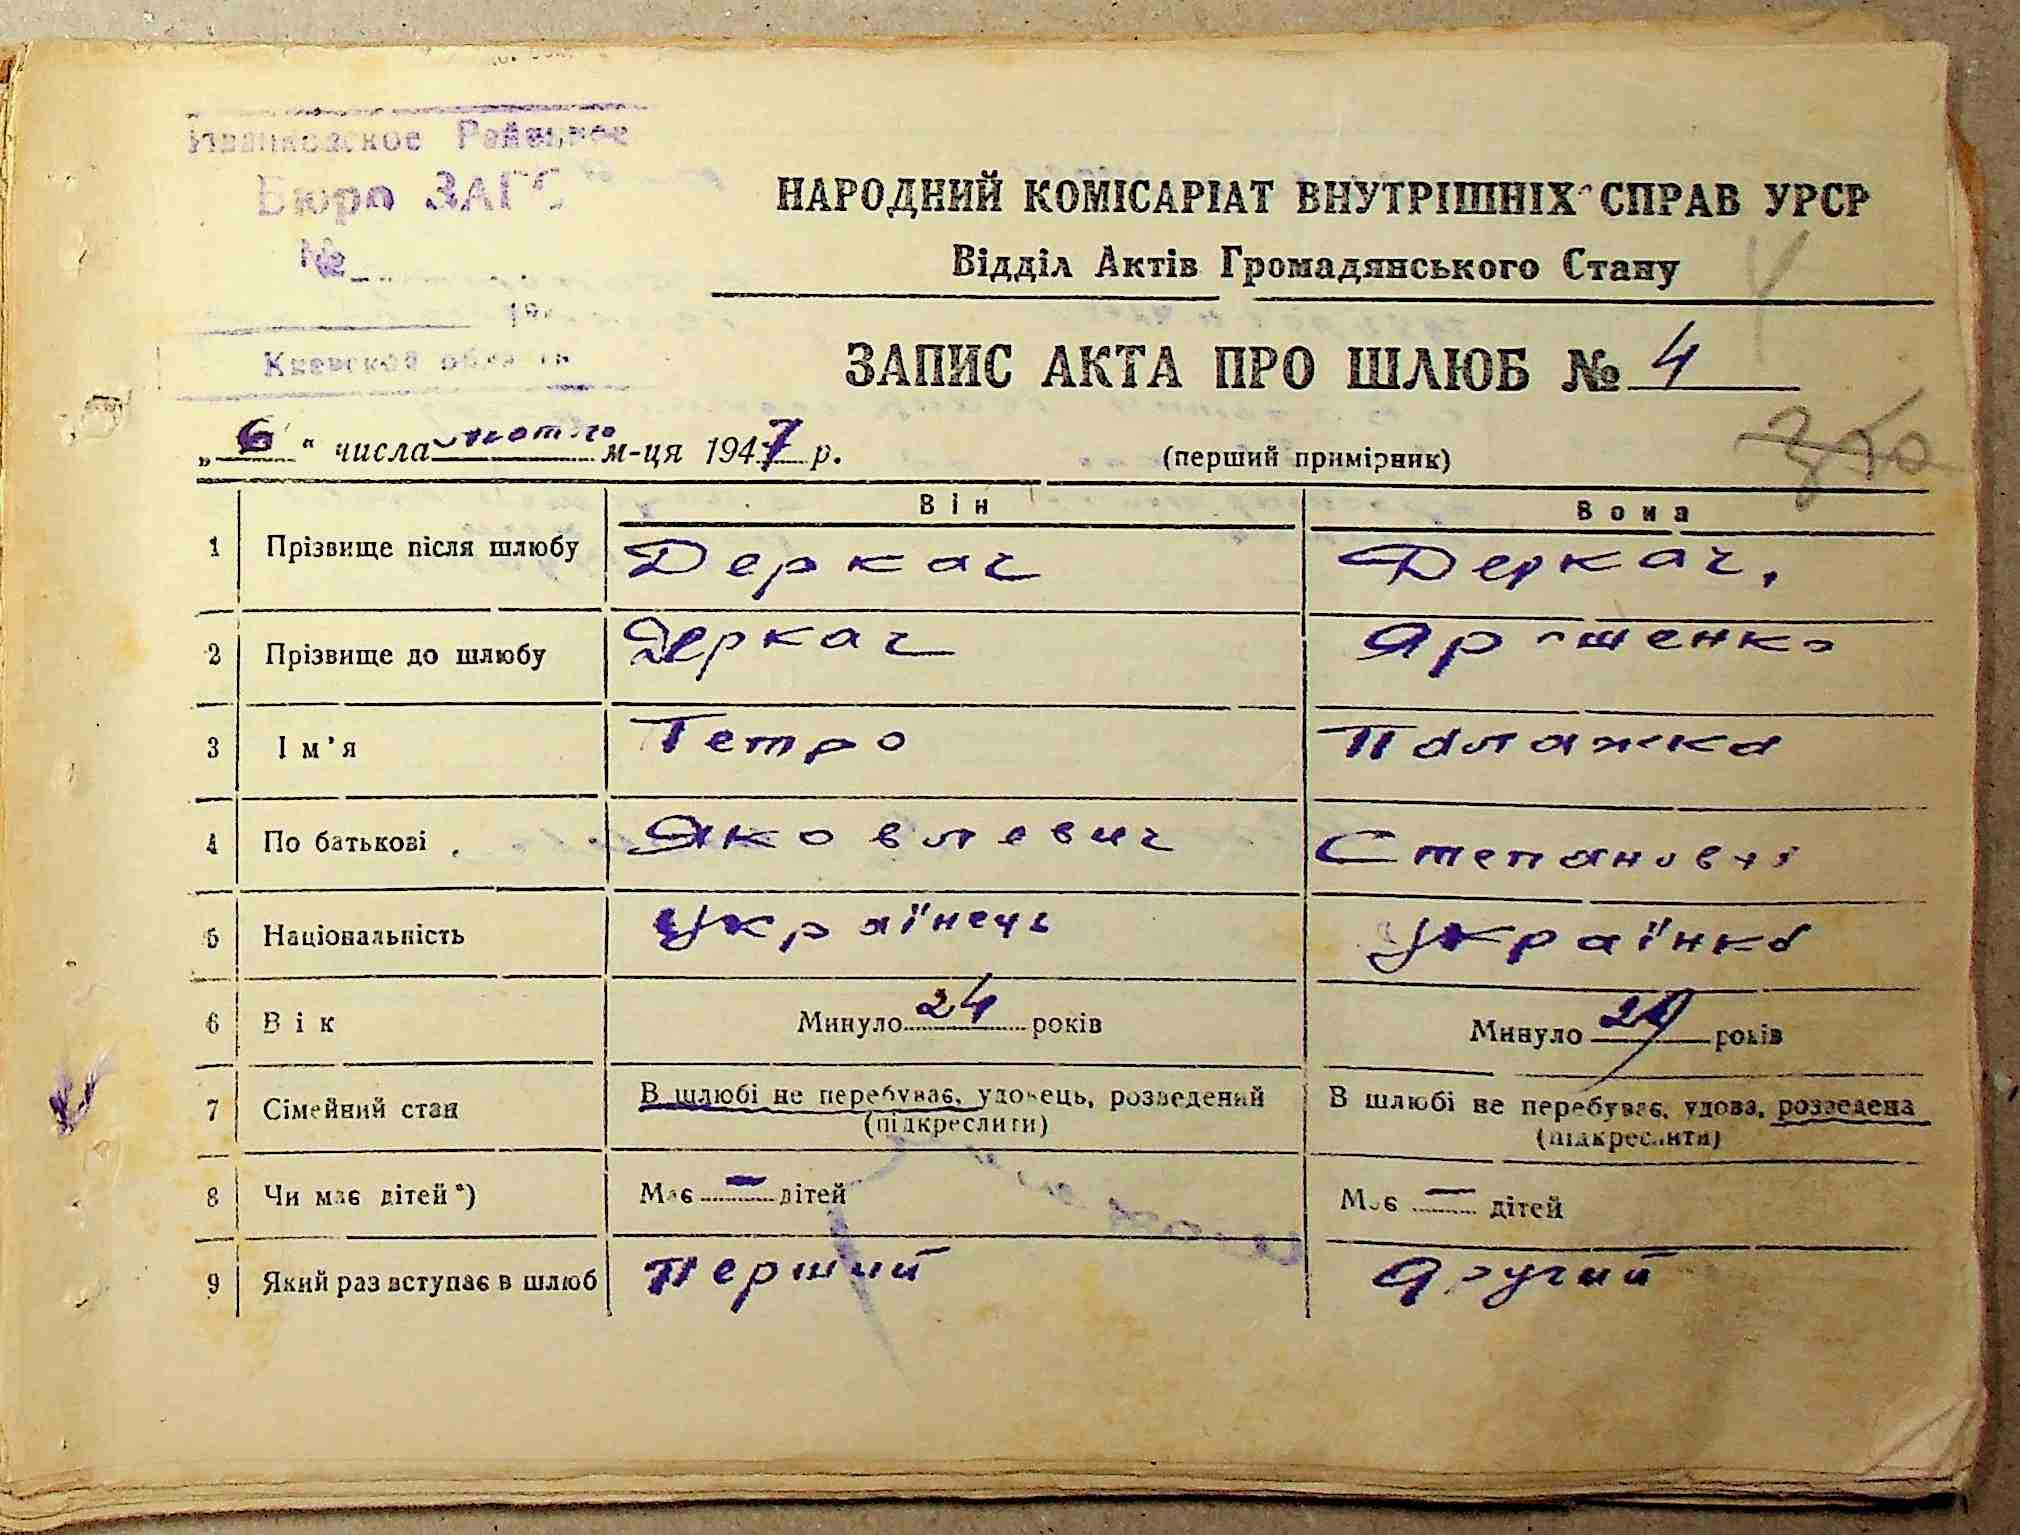 Иванковское Районное
Бюро ЗАГС
№
19
Киевской области
НАРОДНИЙ КОМІСАРІАТ ВНУТРІШНІХ СПРАВ УРСР
Відділ Актів Громадянського Стану
ЗАПИС АКТА ПРО ШЛЮБ № 4
„6“ числа лютого м-ця 1947 р. (перший примірник)
Він Вона
1 Прізвище після шлюбу Деркач Деркач.
2 Прізвище до шлюбу Деркач Ярошенко
3 Ім'я Петро Палажка
4 По батькові Яковлевич Степановна
5 Національність Українець Українка
6 Вік Минуло 24 років Минуло 29 років
7 Сімейний стан В шлюбі не перебуває, удовець, розведений В шлюбі не перебуває, удова, розведена
(підкреслити) (підкреслити)
8 Чи має дітей*) Має — дітей Має — дітей
9 Який раз вступає в шлюб Перший Другий